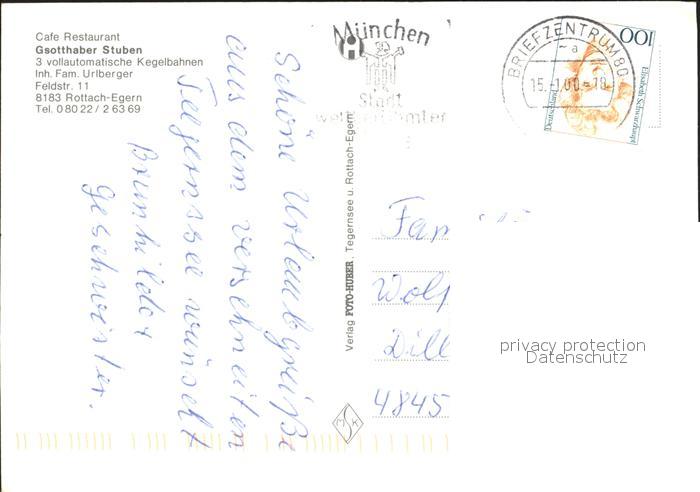 Cafe Restaurant
Gsotthaber Stuben
3 vollautomatische Kegelbahnen
Inh. Fam. Urlberger
Feldstr. 11
8183 Rottach-Egern
Tel. 0 80 22 / 2 63 69
München
Stadt
BRIEFZENTRUM 80
a
15.-1.00.-18
100
Elisabeth Schwarzhaupt
Deutschland
Schöne Urlaubgrüße
aus dem verschneiten
Tegernsee wünscht
Brunhilde
Geschwister.
Verlag FOTO-HUBER, Tegernsee u. Rottach-Egern
MSK
Fam
Wolf
Dill
4845
privacy protection
Datenschutz